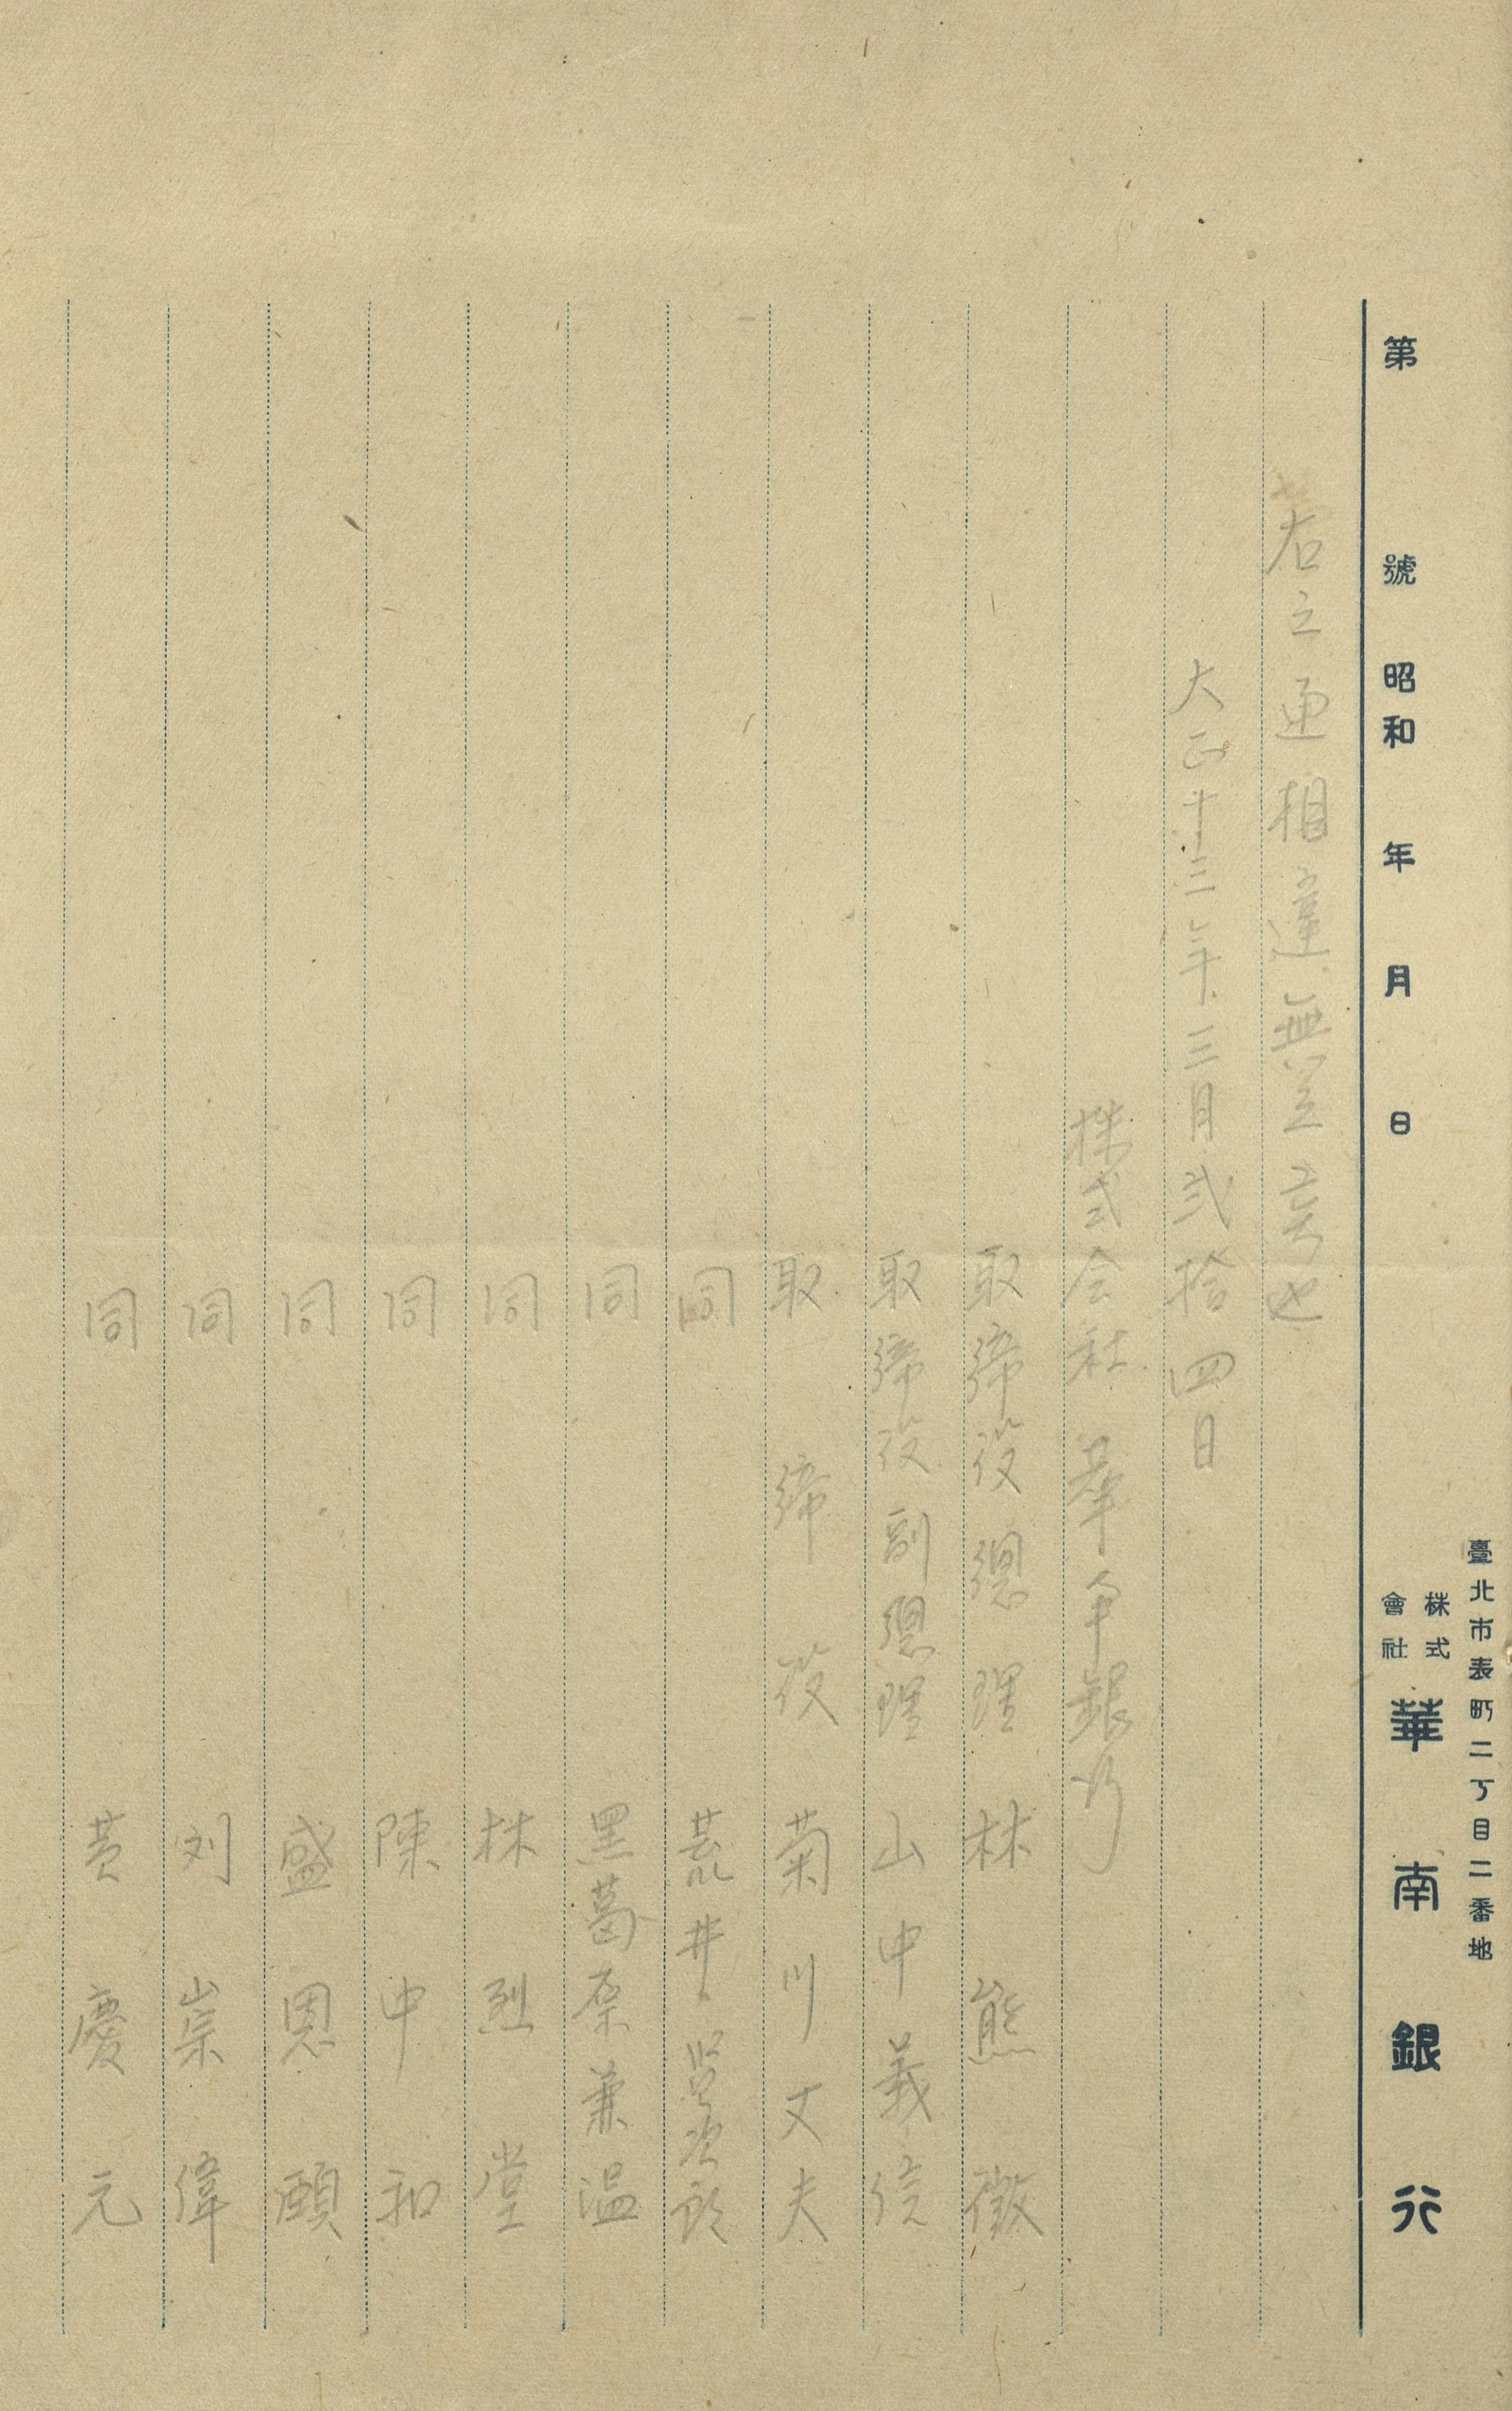 臺北市表町二丁目二番地
第 號 昭和 年 月 日 株式會社 華南銀行
右之通相違無之 也
大正十三年三月弐拾四日
株式会社 華南銀行
取締役總理 林熊徴
取締役副總理 山中義信
取締役 菊川丈夫
同 荒井 次郎
同 黑葛原兼温
同 林烈堂
同 陳中和
同 盛恩頤
同 刘崇偉
同 黄慶元